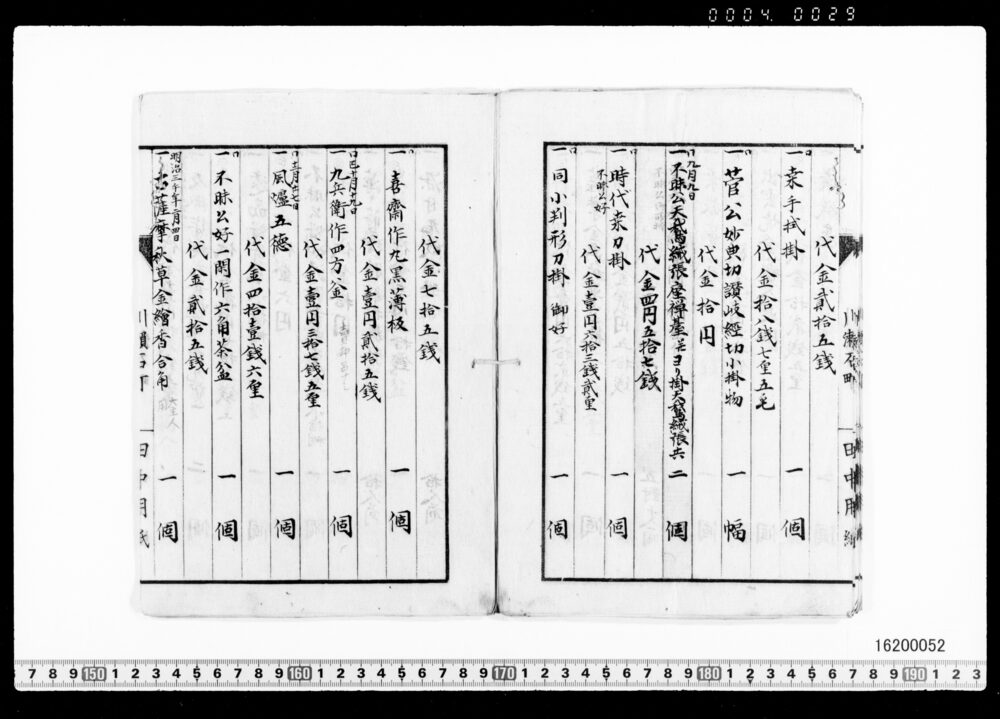 0004. 0029
代金貳拾五錢
一 桒手拭掛 一 個
代金拾八錢七厘五毛
一 菅公妙典切讚岐經切小掛物 一 幅
代金拾円
九月九日
一 不昧公天鵞絨張座禅座 ヨリ掛天鵞絨張共 二 個
代金四円五拾七錢
一 時代桒刀掛 一 個
代金壹円六拾三錢貳厘
不昧公好
一 同小判形刀掛 御好 一 個
代金七拾五錢
一 喜齋作丸黒薄板 一 個
代金壹円貳拾五錢
一 九兵衛作四方釡 一 個
代金壹円三拾七錢五厘
一 風邊五徳 一 個
代金四拾壹錢六厘
一 不昧公好一閑作六角茶盆 一 個
代金貳拾五錢
明治三十年二月四日
一 古薩摩秋草金繪香合角 一 個
川瀬石町
田中用紙
16200052
7 8 9 150 1 2 3 4 5 6 7 8 9 160 1 2 3 4 5 6 7 8 9 170 1 2 3 4 5 6 7 8 9 180 1 2 3 4 5 6 7 8 9 190 1 2 3